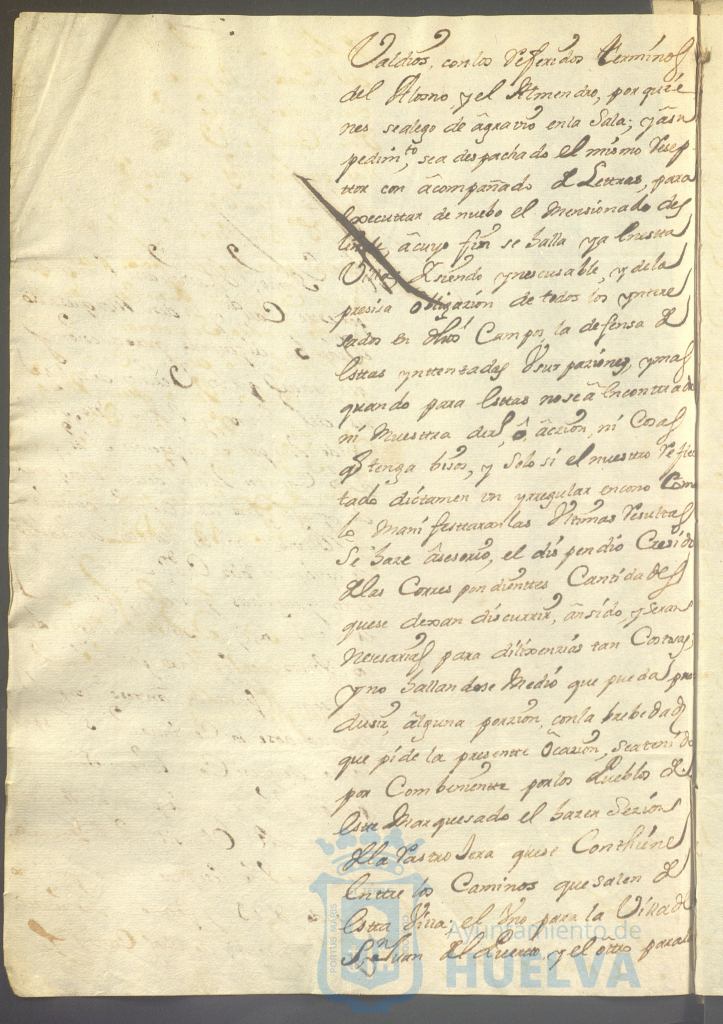 Valdios, con los referidos terminos
del Alosno, y el Almendro, por quie
nes se alego de agravio en la Sala; y a su
pedimto, sea despachado el mismo Resep
ttor con acompañado de Lettras, para
executtar de nuebo el mensionado des
linde, a cuyo fin se halla ya en esta
Villa, y siendo ynescusable, y de la
presisa obligazion de todos los yntere
sados en dhos Campos, la defensa de
esttas ynttentadas Usurpaziones, y mas
quando para esttas no se a encontrado
ni Muestra dro, o aczion, ni Cosas
qe tenga bisos, y solo si el nuestro
tado dictamen un yrregular encono Como
lo Manifesttaran las Ultimas Resultas
Se haze asesorio, el dispendio Cresido
de las Correspondienttes Cantidades
que se dexan discurrir, an sido y seran
Nesesarias para dilixenzias tan Costosas
y no hallandose Medio que pueda pro
dusir, alguna porzion, con la brebedad
que pide la presentte Ocazion, se a tenido
por Combenientte por los Pueblos de
este Marquesado el hazer Sezion
de la Pasttosera que se Conthiene
enttre los Caminos que salen de
estta Villa; el Uno para la Villa de
Sn Juan del Puertto, y el otro para la
Ayuntamiento de
HUELVA